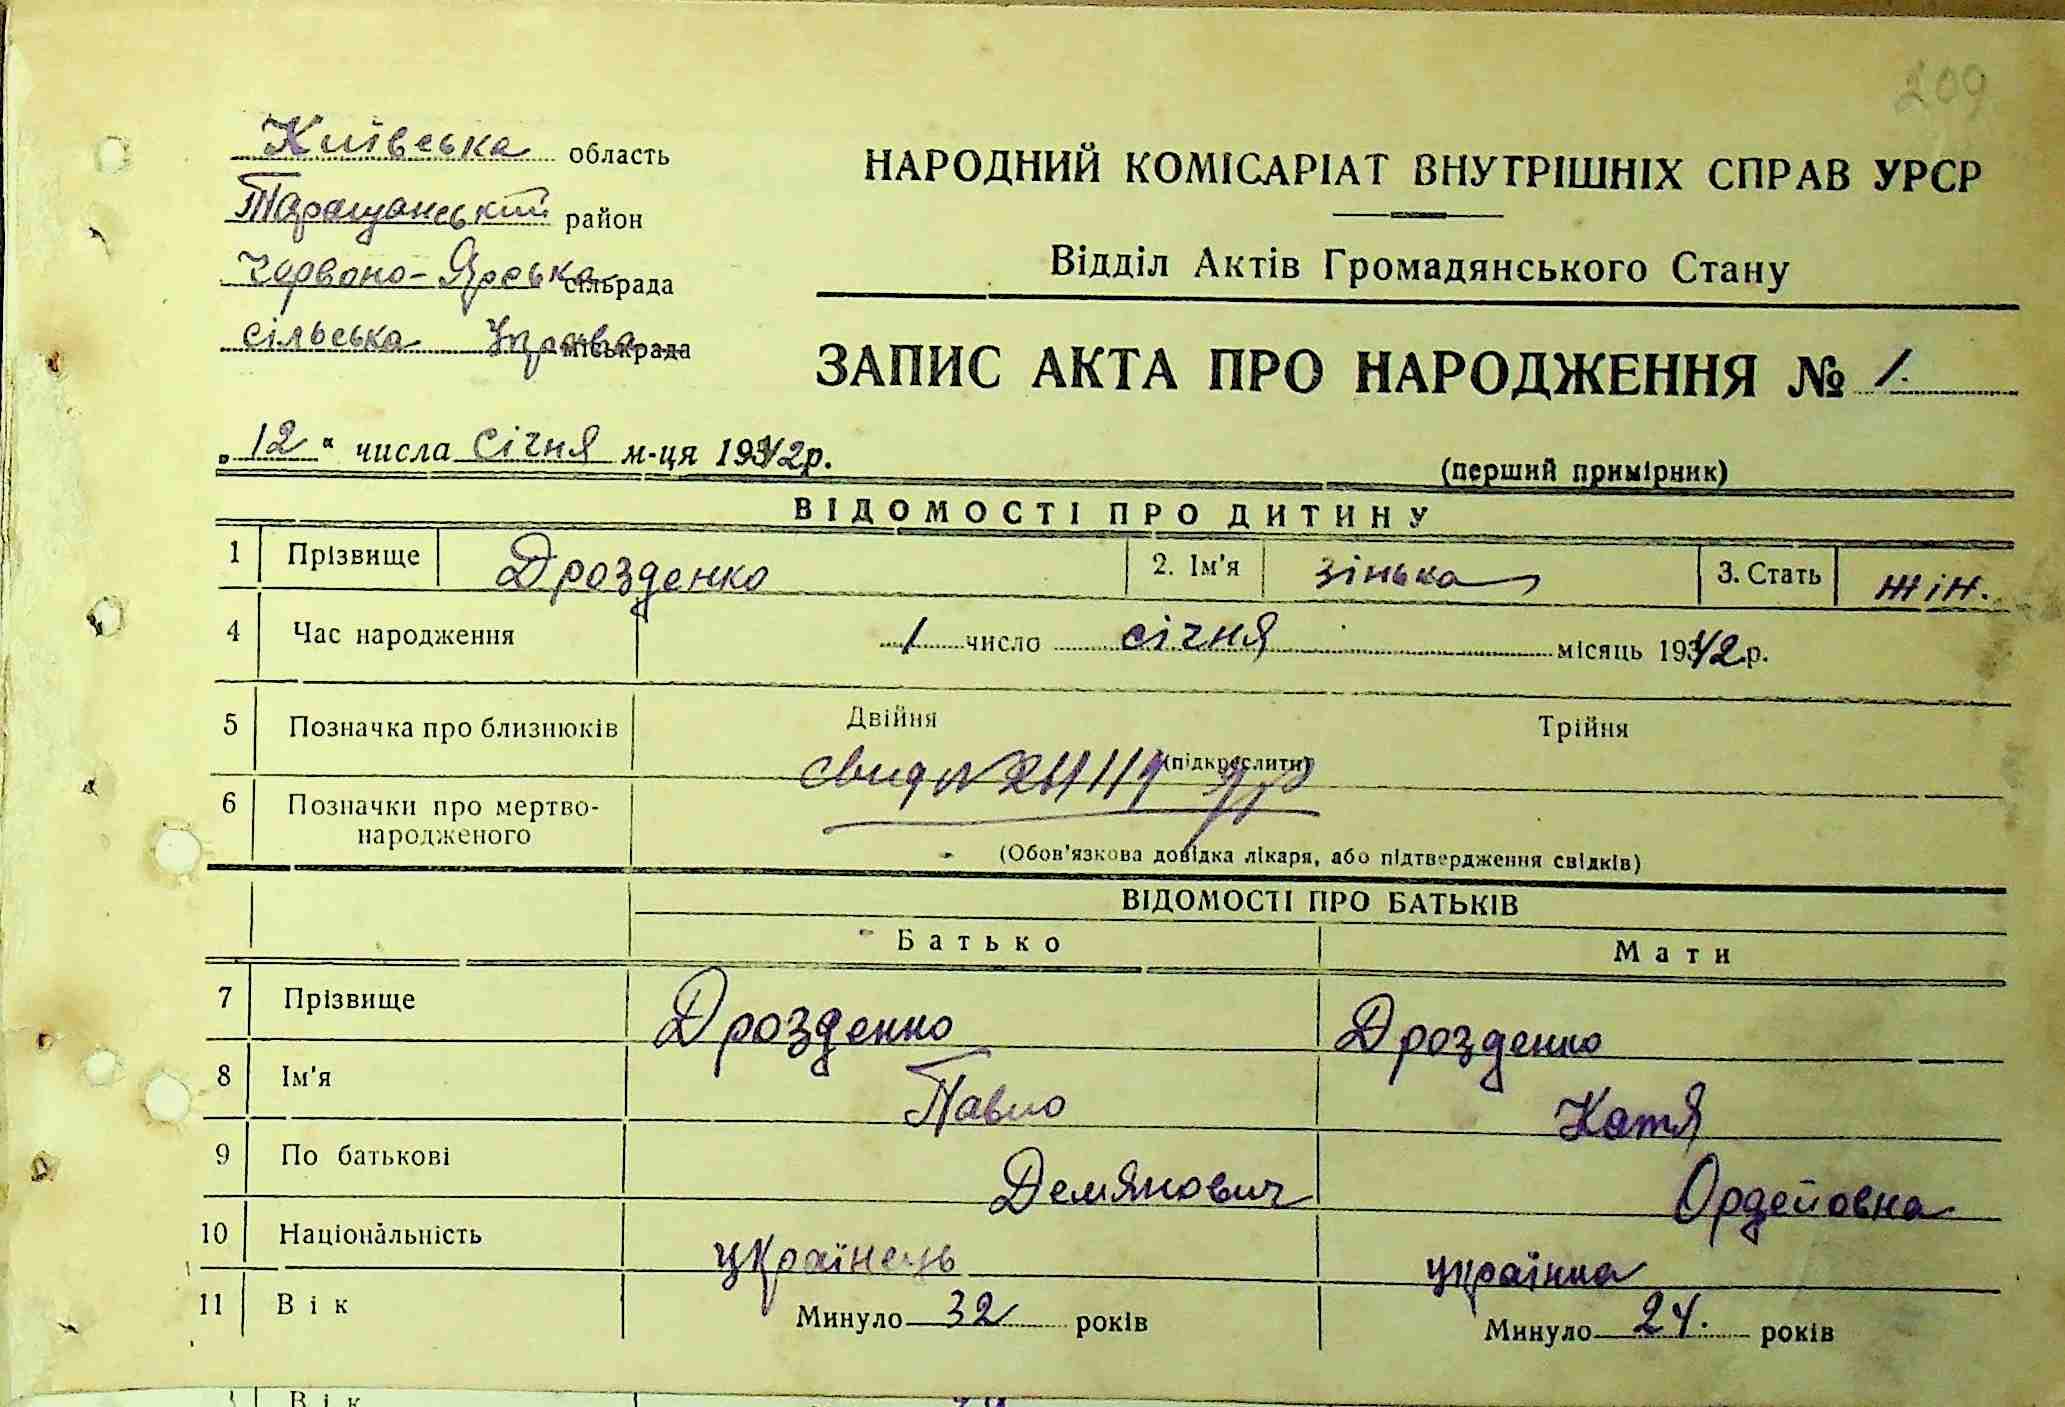 209
Київська область
Таращанський район
Червоно-Ярська сільрада
сільська Управа міськрада
НАРОДНИЙ КОМІСАРІАТ ВНУТРІШНІХ СПРАВ УРСР
Відділ Актів Громадянського Стану
ЗАПИС АКТА ПРО НАРОДЖЕННЯ № 1.
„12“ числа січня м-ця 1942р.
(перший примірник)
ВІДОМОСТІ ПРО ДИТИНУ
1 Прізвище Дрозденко 2. Ім'я Зінька 3. Стать жін.
4 Час народження 1 число січня місяць 1942 р.
5 Позначка про близнюків Двійня Трійня
(підкреслити)
6 Позначки про мертво-
народженого
(Обов'язкова довідка лікаря, або підтвердження свідків)
ВІДОМОСТІ ПРО БАТЬКІВ
Батько Мати
7 Прізвище Дрозденко Дрозденко
8 Ім'я Павло Катя
9 По батькові Демянович Ордейовна
10 Національність українець українка
11 Вік Минуло 32 років Минуло 24. років
Вік